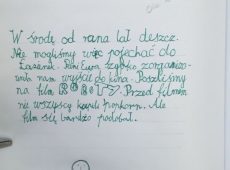 W środę od rana lał deszcz.
Nie mogliśmy więc pojechać do
Łazienek. Pani Ewa szybko zorganizo-
wała nam wyjście do kina. Poszliśmy
na film ROBOTY. Przed filmem
nie wszyscy kupili popkorn. Ale
film się bardzo podobał.